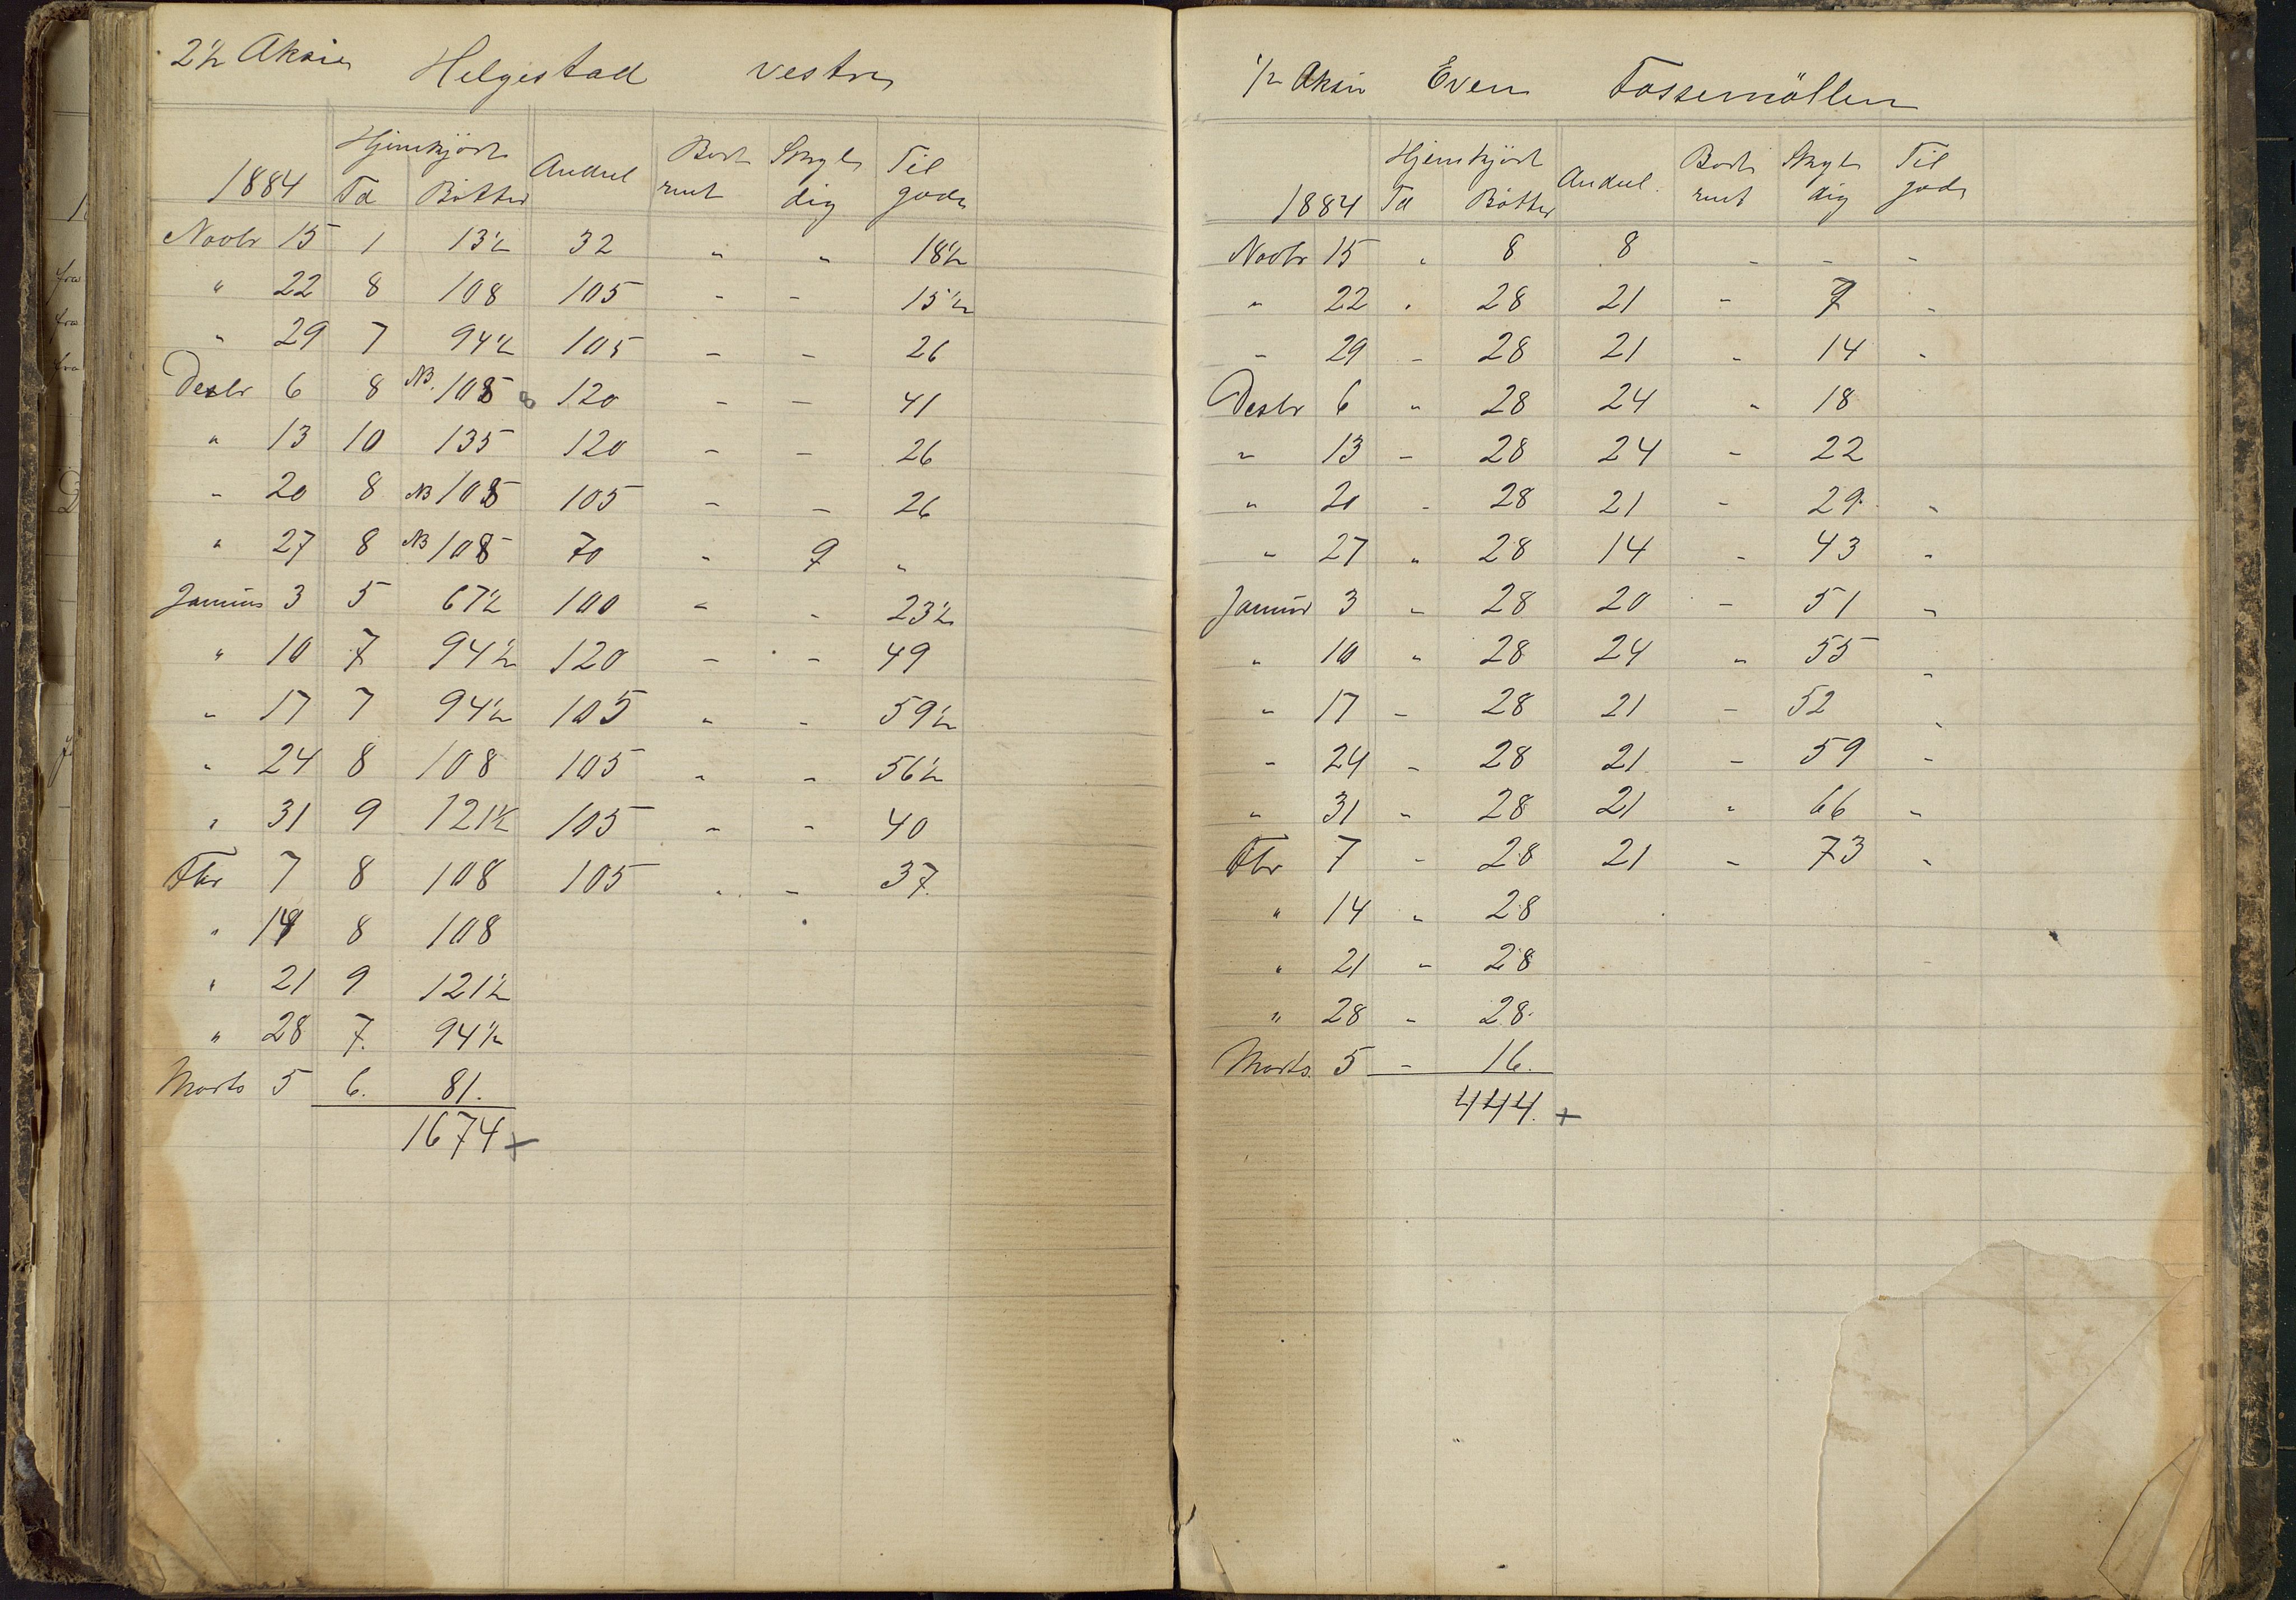 2 1/2 Aksier Helgestad vestre
Hjemkjört Andeel Bort Skyl Til
1884 Td Bötter rent dig gode
Novbr 15 1 13 1/2 32 " " 18 1/2
" 22 8 108 105 - - 15 1/2
" 29 7 94 1/2 105 - - 26
Desbr 6 8 NB. 108 120 - - 41
" 13 10 135 120 - - 26
" 20 8 NB 108 105 - - 26
" 27 8 NB 108 70 " 9 "
Januar 3 5 67 1/2 100 " - 23 1/2
" 10 7 94 1/2 120 - - 49
" 17 7 94 1/2 105 " - 59 1/2
" 24 8 108 105 " " 56 1/2
" 31 9 121 1/2 105 " - 40
Fbr 7 8 108 105 . - 37.
" 14 8 108
" 21 9 121 1/2
" 28 7. 94 1/2
Marts 5 6. 81.
1674 +
1/2 Aksie Even Fossemöllen
Hjemkjört Andeel. Bort Skyl Til
1884 Td Bötter rent dig gode
Novbr 15 " 8 8 - - -
" 22 " 28 21 - 7 -
" 29 - 28 21 - 14 -
Desbr 6 " 28 24 " 18
" 13 - 28 24 - 22
" 20 - 28 21 - 29. -
" 27 " 28 14 - 43 -
Januar 3 " 28 20 - 51 -
" 10 " 28 24 " 55 -
" 17 - 28 21 - 52 -
" 24 - 28 21 - 59 -
" 31 - 28 21 " 66 -
Fbr 7 - 28 21 - 73 -
" 14 " 28
" 21 - 28
" 28 - 28.
Marts. 5 - 16.
444. +